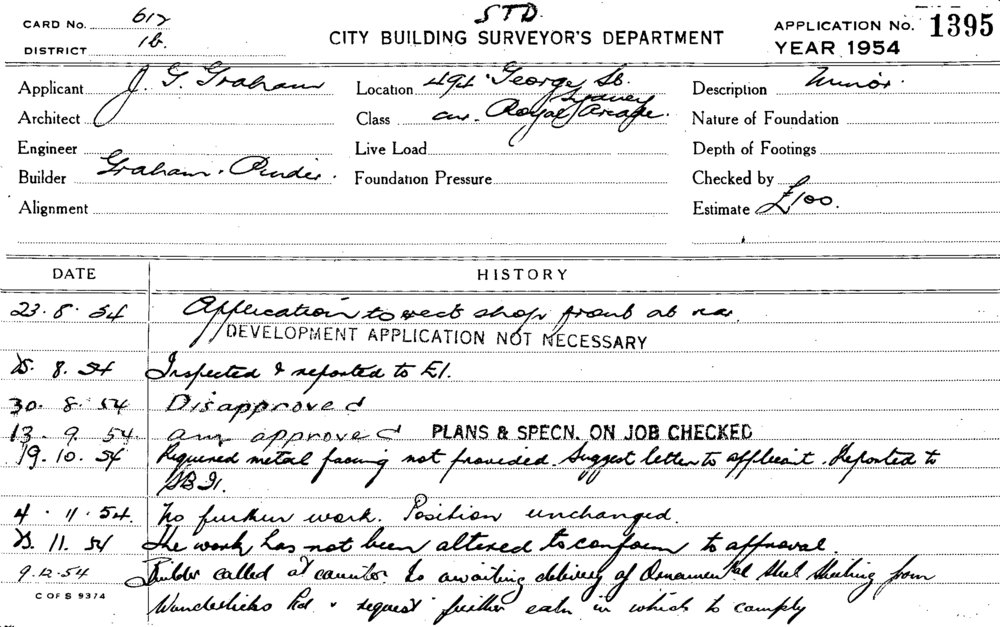 STD.
CARD No. 612
DISTRICT 1b.
CITY BUILDING SURVEYOR'S DEPARTMENT
APPLICATION No. 1395
YEAR 1954
Applicant J. G. Graham
Location 494 George St. Sydney
Description Minor.
Architect
Class Royal Arcade.
Nature of Foundation
Engineer
Live Load
Depth of Footings
Builder Graham
Foundation Pressure
Checked by
Alignment
Estimate £100.
DATE HISTORY
23.8.54 Application to erect shop front at
DEVELOPMENT APPLICATION NOT NECESSARY
25.8.54 Inspected & reported to
30.8.54 Disapproved
13.9.54 approved PLANS & SPECN. ON JOB CHECKED
19.10.54 Required metal facing not provided. Suggest letter to applicant. Reported to
4.11.54. No further work. Position unchanged.
25.11.54 The work has not been altered to conform to approval.
9.12.54 Builder called at counter. Is awaiting delivery of Ornamental Steel Sheeting from
C OF S 9374
Wunderlichs Ltd & request further in which to comply